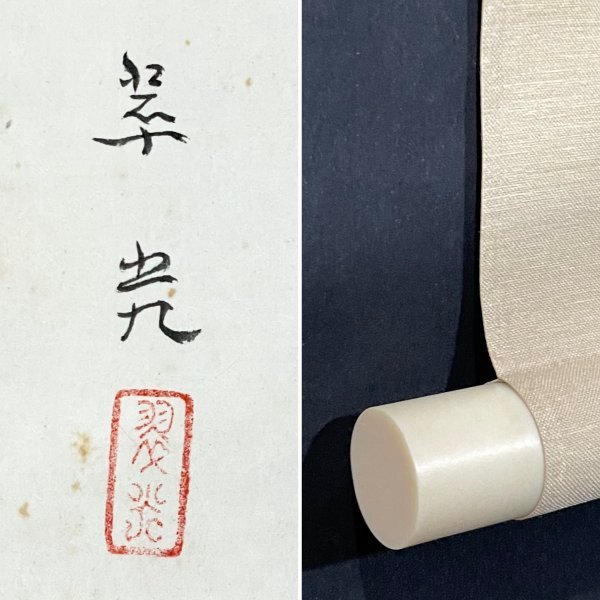 翠
光
翠光